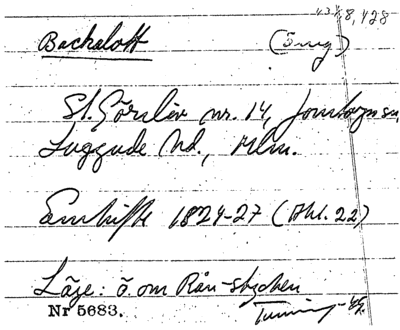 43.78,428
Backaloft (Äng)
St. Görslöv nr. 14, Jonstorps sn,
Luggude hd., Mlm.
Enskifte 1824-27 (Akt. 22)
Läge: ö. om Rån-stycken
Nr 5683.